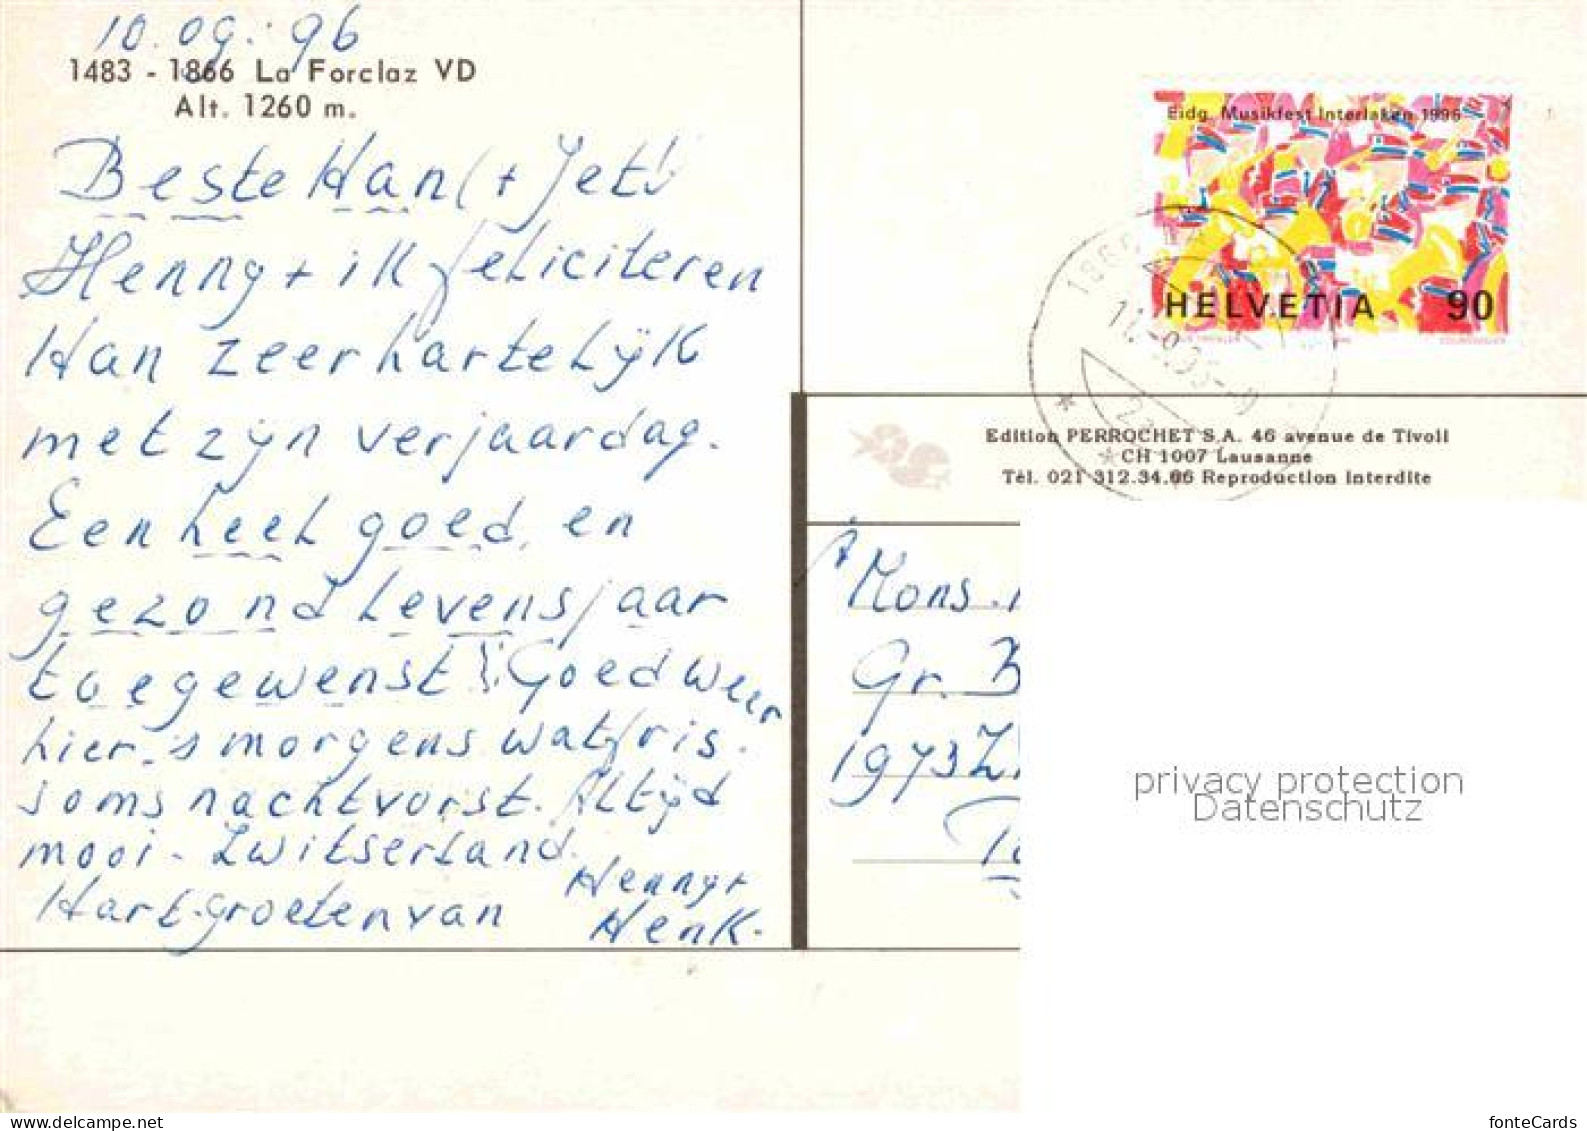 10.09.'96
1483 - 1866 La Forclaz VD
Alt. 1260 m.
Beste Han (+ Jet!)
Henny + ik feliciteren
Han zeer hartelijk
met zijn verjaardag.
Een heel goed en
gezond levensjaar
toegewenst! Goed weer
hier, 's morgens wat fris.
soms nachtvorst. Altijd
mooi - Zwitserland.
Hart. groeten van
Henny +
Henk.
Eidg. Musikfest Interlaken 1996
HELVETIA 90
Edition PERROCHET S.A. 46 avenue de Tivoli
CH 1007 Lausanne
Tél. 021 312.34.66 Reproduction Interdite
À
Mons.
Gr. B
1973
privacy protection
Datenschutz
fonteCards